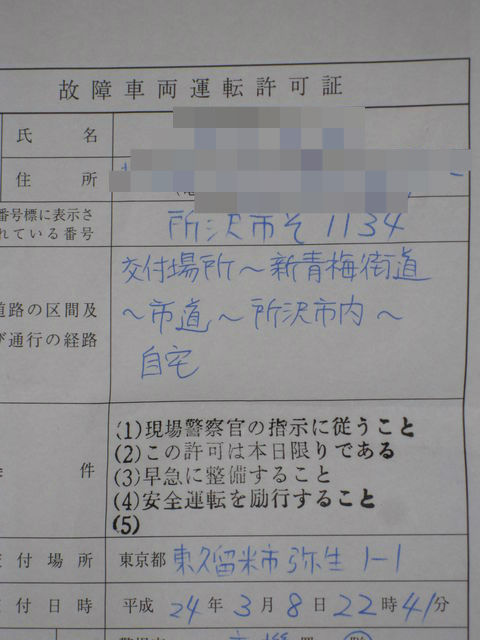 故障車両運転許可証
氏名
住所
番号標に表示さ
れている番号
所沢市そ1134
道路の区間及
び通行の経路
交付場所～新青梅街道
～市道～所沢市内～
自宅
件
(1)現場警察官の指示に従うこと
(2)この許可は本日限りである
(3)早急に整備すること
(4)安全運転を励行すること
(5)
交付場所 東京都 東久留米市弥生1-1
交付日時 平成24年3月8日22時41分